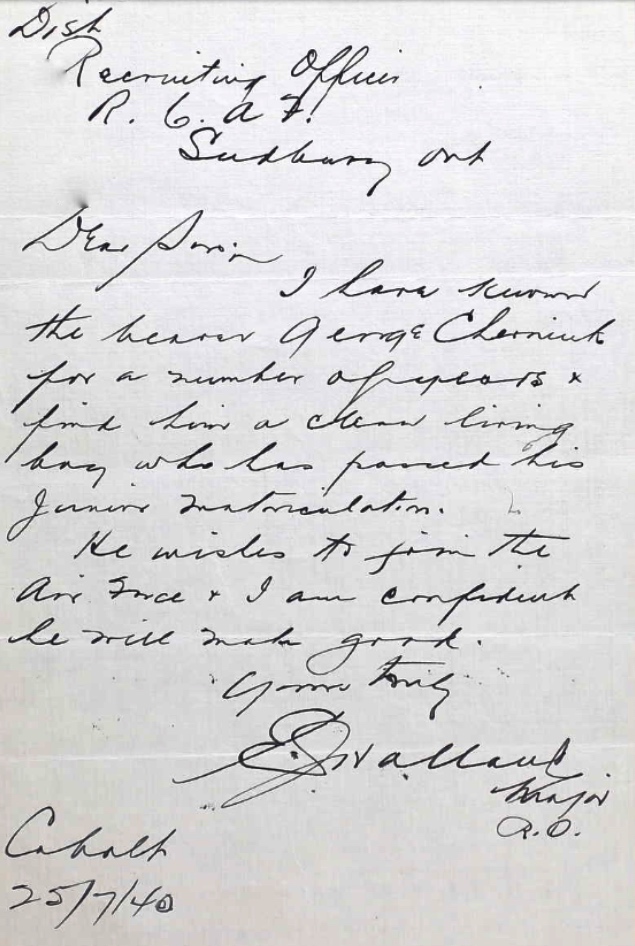 Dist
Recruiting Officer
R. C. A F.
Sudbury Ont
Dear Sir
I have known
the bearer George Cherniuk
for a number of years &
find him a clean living
boy who has passed his
Junior Matriculation.
He wishes to join the
Air Force & I am confident
he will make good.
Yours truly
Major
R.O.
Cobalt
25/7/40